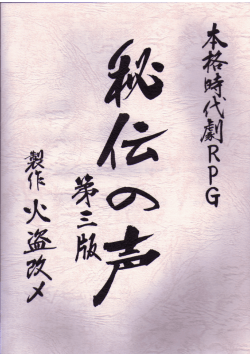 本格時代劇RPG
秘伝の声
第三版
製作 火盗改メ